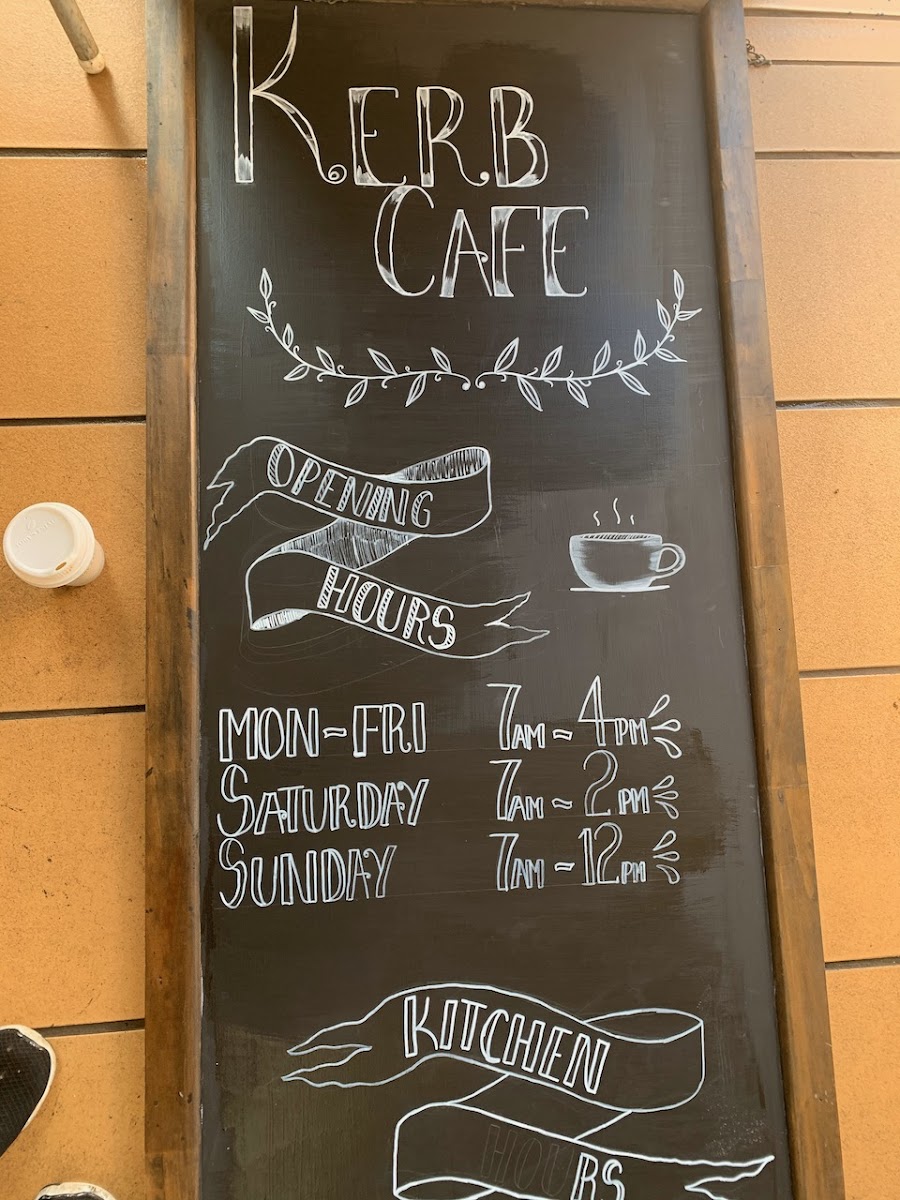 KERB
CAFE
OPENING
HOURS
MON~FRI 7AM ~ 4PM
SATURDAY 7AM ~ 2PM
SUNDAY 7AM ~ 12PM
KITCHEN
HOURS